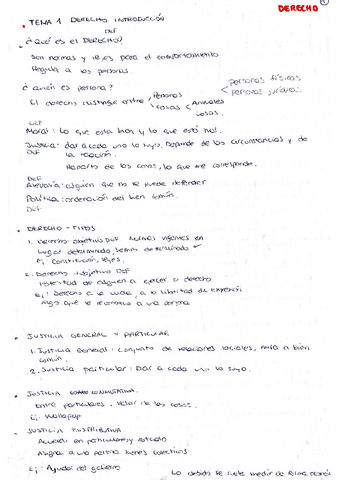 DERECHO
• TEMA 1 DERECHO INTRODUCCIÓN
DEF
¿Qué es el DERECHO?
Son normas y leyes para el comportamiento
Regula a las personas.
¿Quién es persona?
El derecho distingue entre Personas personas físicas
personas jurídicas
Cosas Animales
cosas.
DEF
Moral: Lo que está bien y lo que está mal.
Justicia: dar a cada uno lo suyo, Depende de las circunstancias y de
DEF la relación.
Reparto de las cosas, lo que me corresponde.
DEF
alguien que no se puede defender
Política: ordenación del bien común.
DEF
• DERECHO - TIPOS
1. Derecho objetivo DEF Normas vigentes en
lugar determinado, determinado
Ej: Constitución, leyes.
2. Derecho subjetivo DEF
Potestad de alguien a ejercer su derecho
Ej: Derecho a la a la libertad de expresión
Algo que le reconoce a una persona
• JUSTICIA GENERAL Y PARTICULAR
1. Justicia General: conjunto de relaciones sociales, mira a bien
común.
2. Justicia particular: Dar a cada uno lo suyo.
• JUSTICIA CONMUTATIVA.
Entre particulares, valor de las cosas.
Ej: Wallapop
• JUSTICIA DISTRIBUTIVA
Acuerdo en particulares y estado
Asigna a una persona bienes colectivos
Ej: Ayudas del gobierno
Lo debido se suele medir de forma